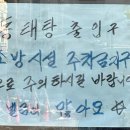 동태탕 출입구
소방시설 주차금지구
으로 주의하시길 바랍니다
알아요